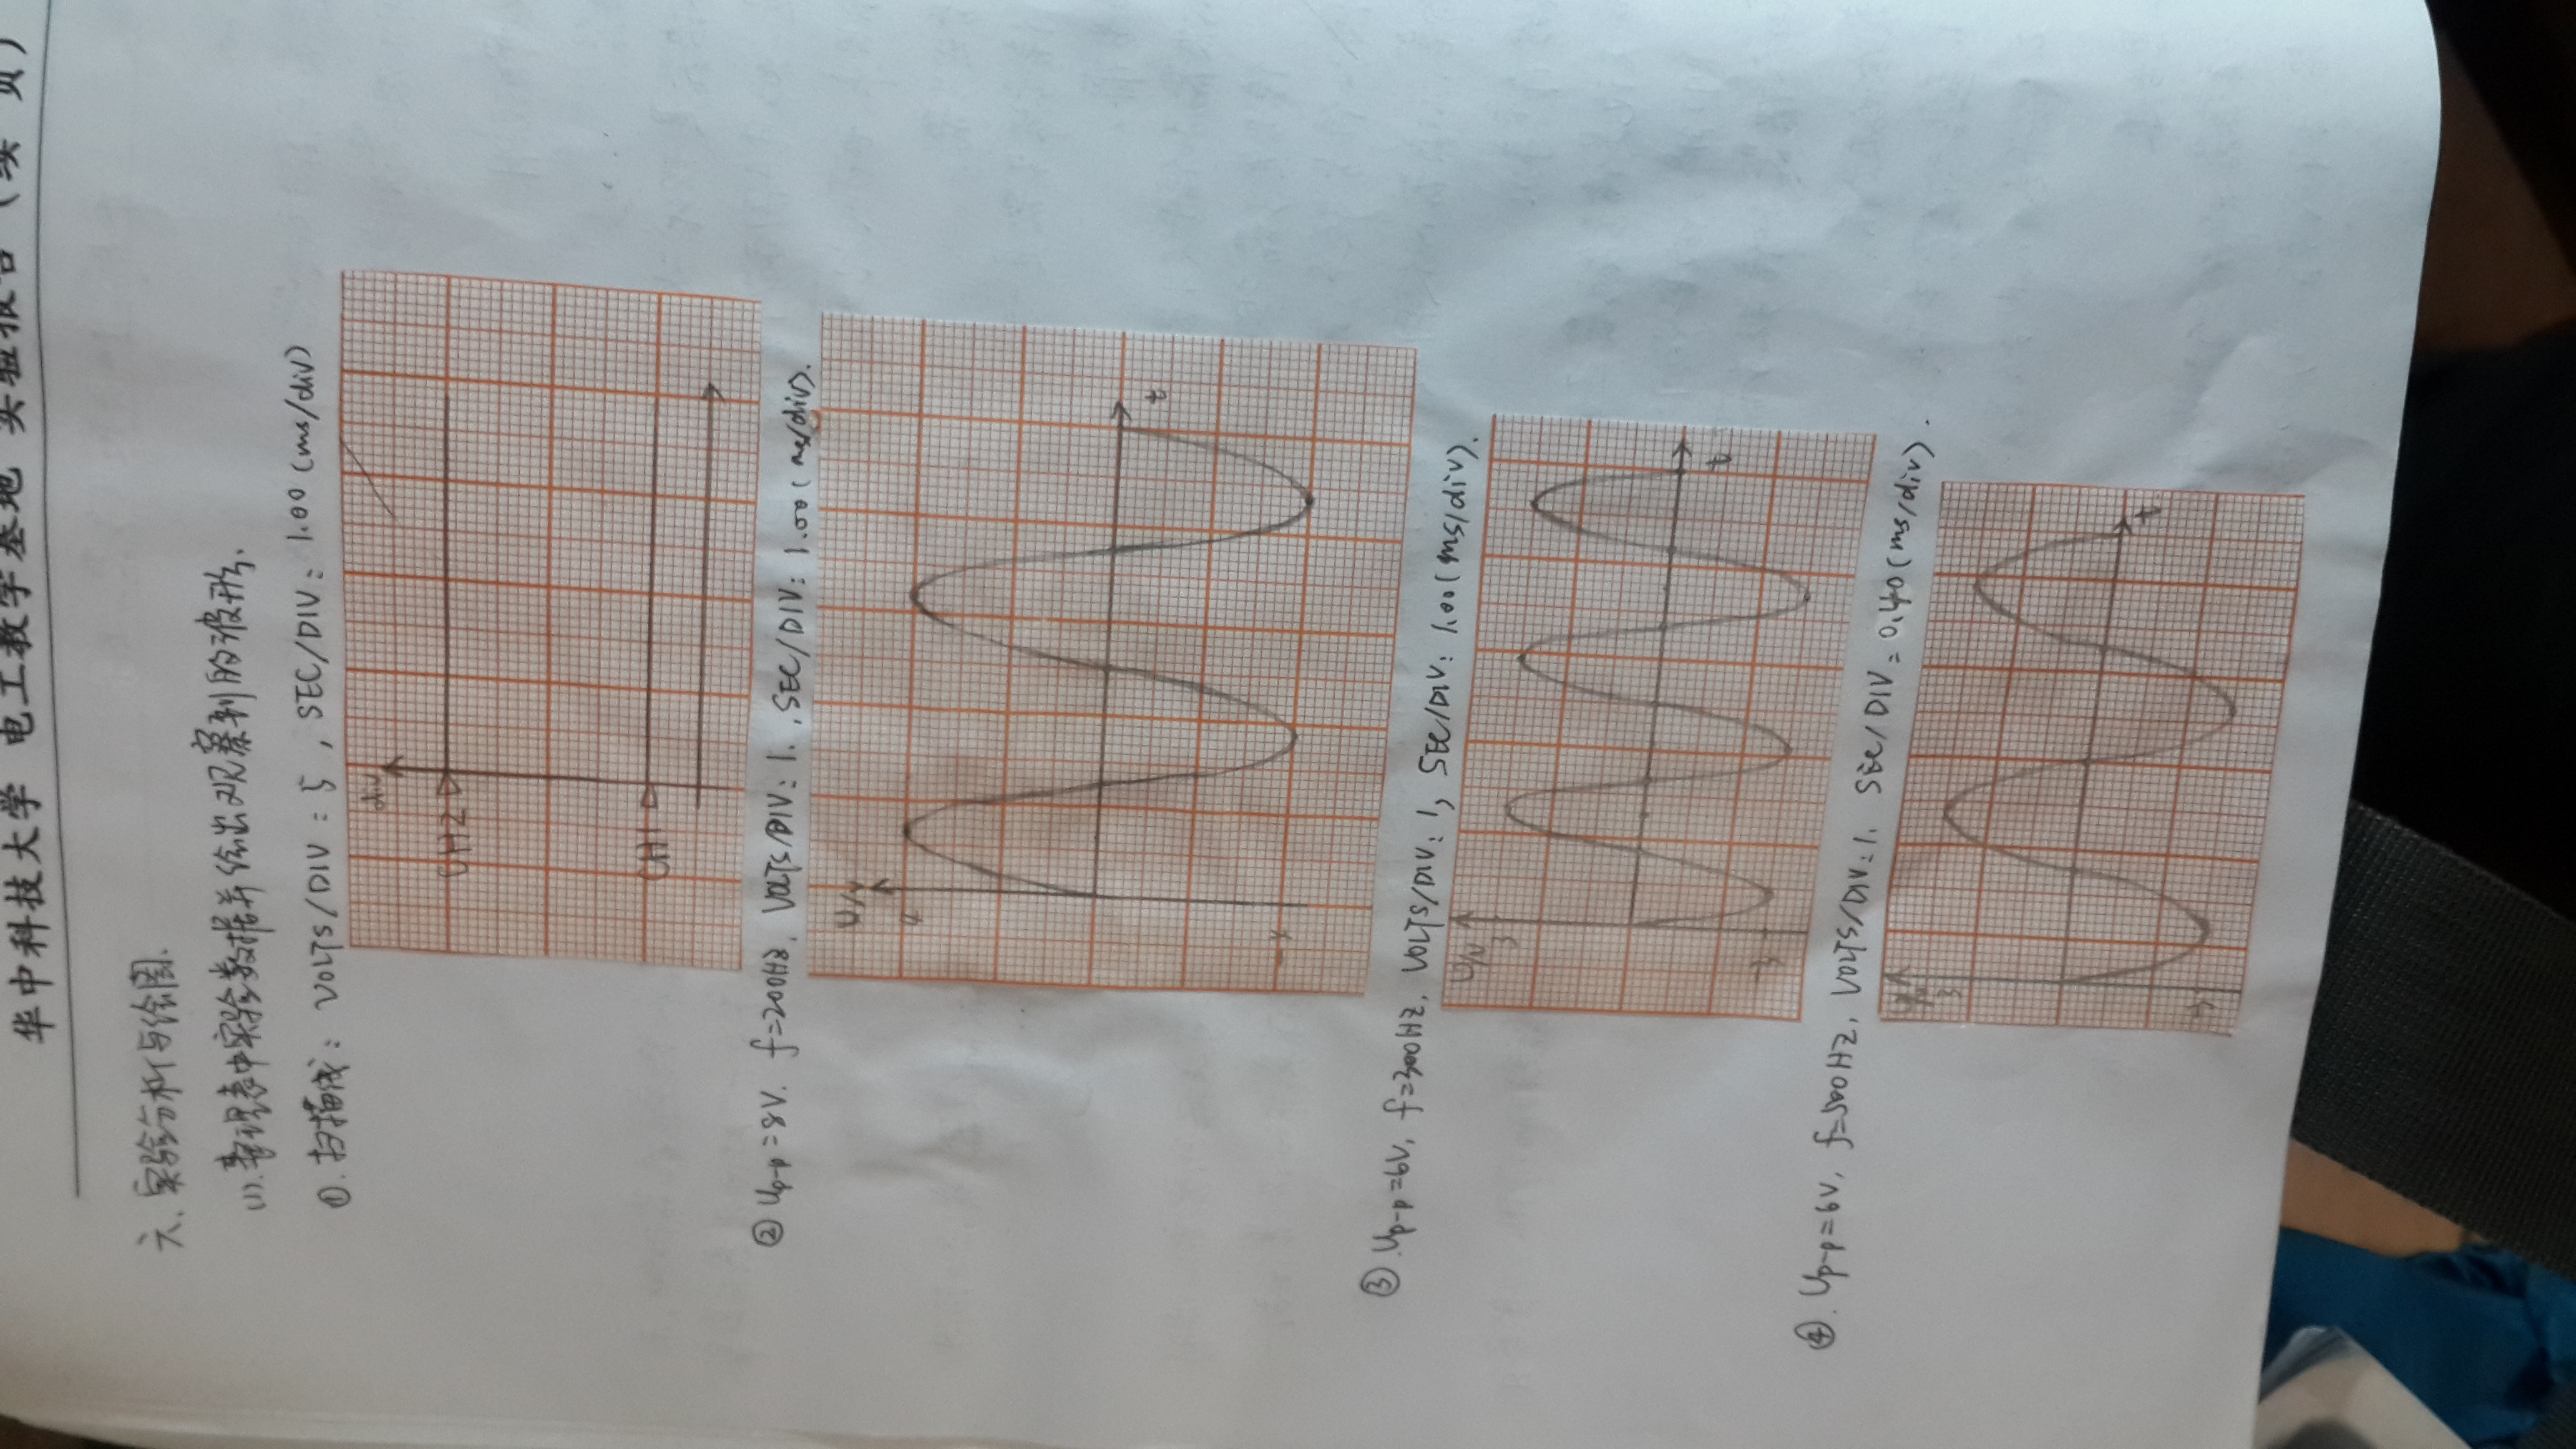 华中科技大学 电工教学基地 实验报告（续 页）
六、实验分析与绘图.
(1). 整理表中实验数据并绘出观察到的波形.
①. 扫描线：VOLTS/DIV：5，SEC/DIV：1.00 (ms/div)
div
CH2
CH1
② Up-p=8V. f=200HZ, VOLTS/DIV：1. , SEC/DIV：1.00 (ms/div).
U/V
4
t
-4
③ Up-p=6V, f=300HZ, VOLTS/DIV：1, SEC/DIV：1.00 (ms/div).
U/V
3
t
-3
④. Up-p=6V, f=500HZ, VOLTS/DIV：1. SEC/DIV=0.40 (ms/div).
U/V
3
t
-3